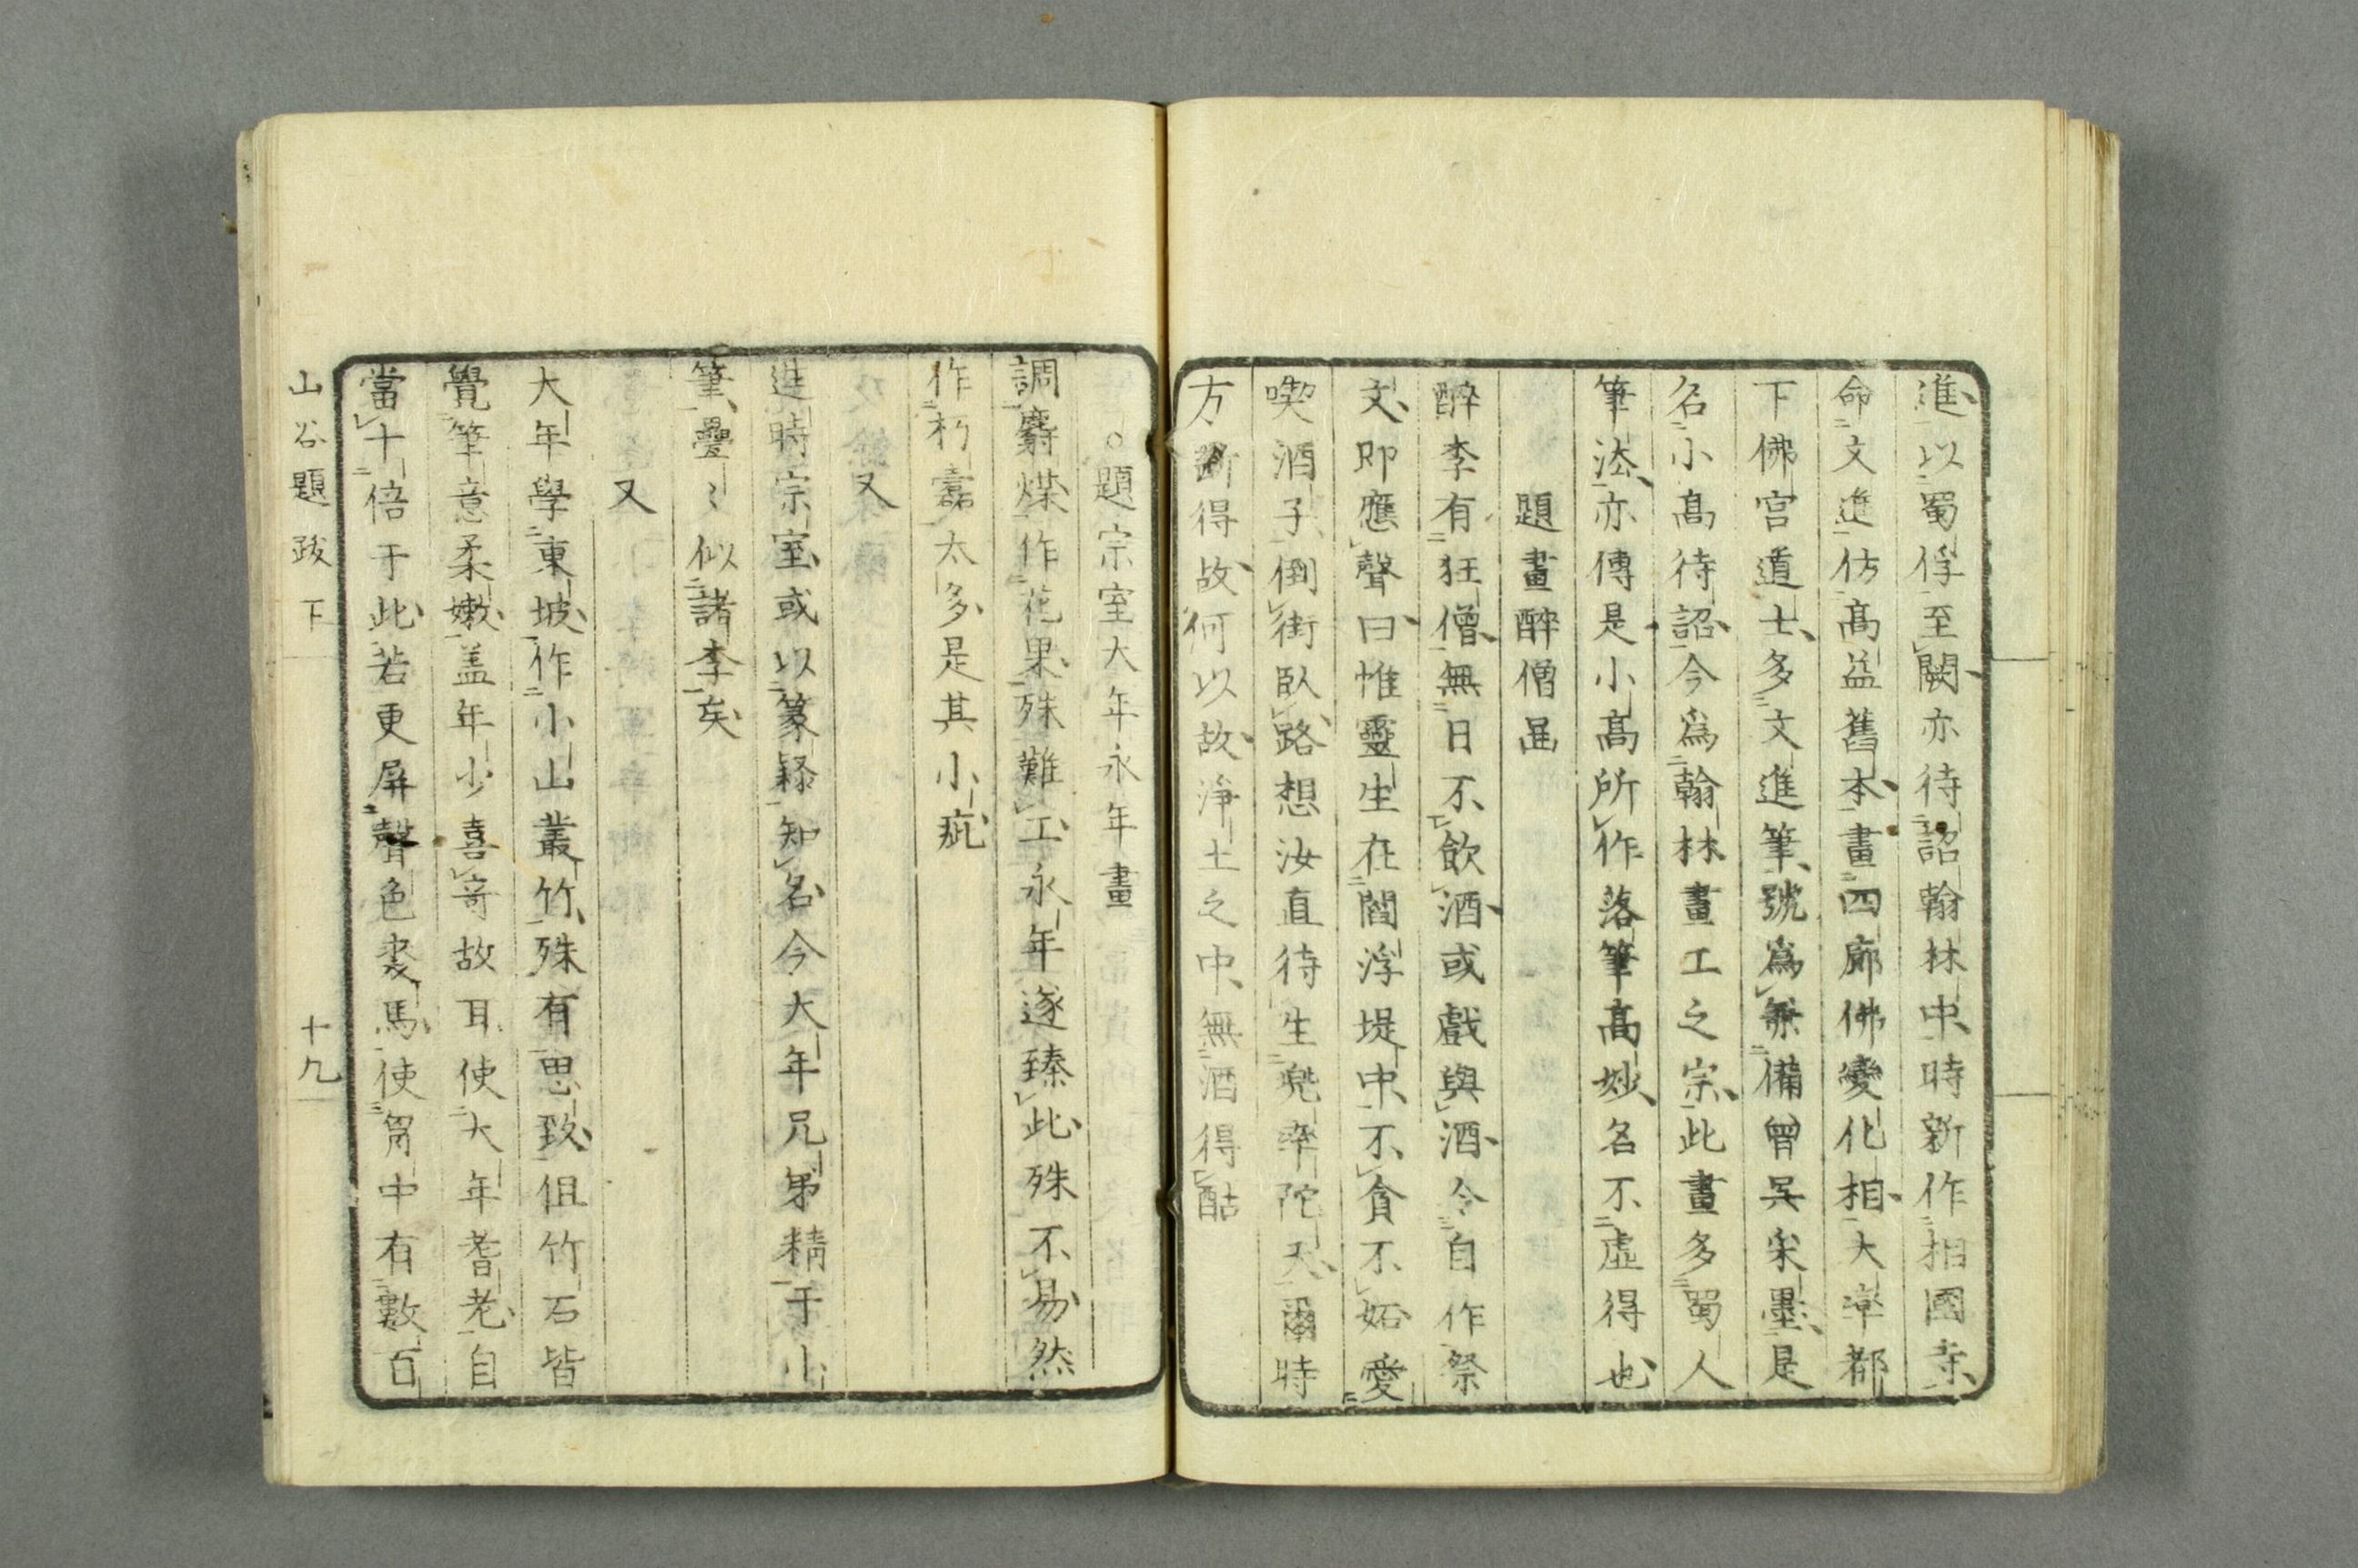 進以蜀俘至闕亦待詔翰林中時新作相國寺
命文進仿髙益舊本畫四廊佛變化相大率都
下佛宫道士多文進筆號爲兼備曹吳采墨是
名小髙待詔今爲翰林畫工之宗此畫多蜀人
筆法亦傳是小髙所作落筆髙妙名不虛得也
題畫醉僧啚
醉李有狂僧無日不飲酒或戲與酒令自作祭
文即應聲曰惟靈生在閻浮堤中不貪不妬愛
喫酒子倒街臥路想汝直待生兜率陀天爾時
方斷得故何以故淨土之中無酒得酤
○題宗室大年永年畫
調麝煤作花果殊難工永年遂臻此殊不易然
作朽蠹太多是其小疵
又
進時宗室或以篆繹知名今大年兄弟精于小
筆疊〻似諸李矣
又
大年學東坡作小山叢竹殊有思致但竹石皆
覺筆意柔嫩盖年少喜竒故耳使大年耆老自
當十倍于此若更屏聲色裘馬使胷中有數百
山谷題跋下 十九